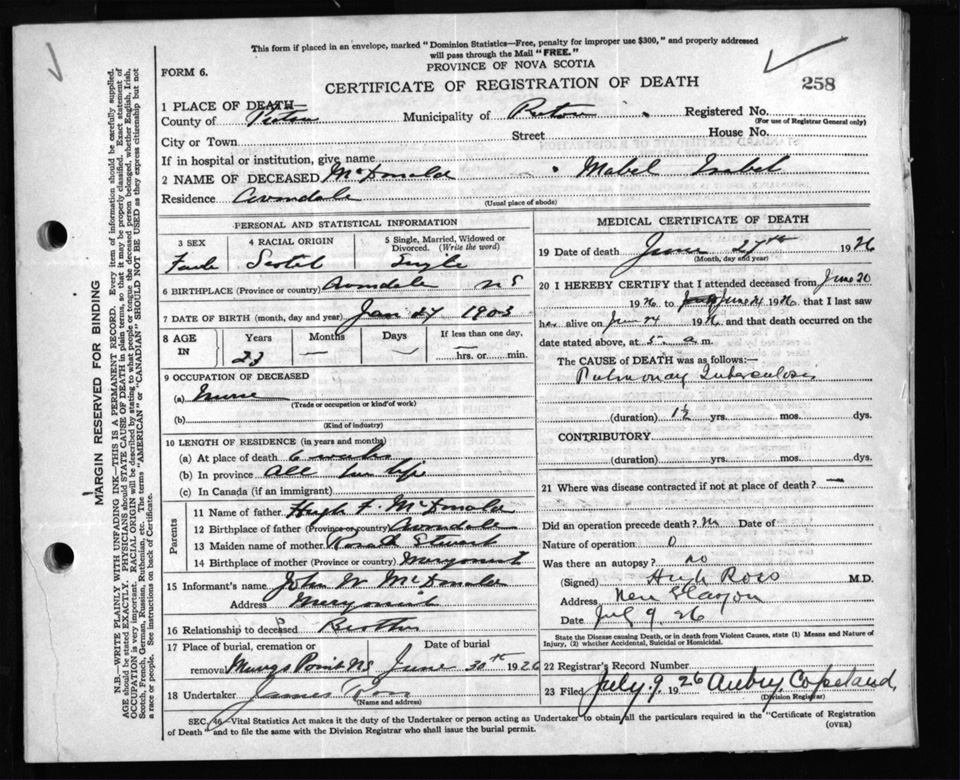 This form if placed in an envelope, marked "Dominion Statistics—Free, penalty for improper use $300," and properly addressed
will pass through the Mail "FREE."
FORM 6.
PROVINCE OF NOVA SCOTIA
CERTIFICATE OF REGISTRATION OF DEATH
258
1 PLACE OF DEATH—
County of Pictou Municipality of Pictou Registered No.
(For use of Registrar General only)
City or Town Street House No.
If in hospital or institution, give name
2 NAME OF DECEASED McDonald Mabel Isabel
Residence Avondale
(Usual place of abode)
PERSONAL AND STATISTICAL INFORMATION
3 SEX 4 RACIAL ORIGIN 5 Single, Married, Widowed or
Divorced. (Write the word)
Scotch Single
6 BIRTHPLACE (Province or country) Avondale N S
7 DATE OF BIRTH (month, day and year) Jan 1903
8 AGE IN Years Months Days If less than one day,
23 — — hrs. or min.
9 OCCUPATION OF DECEASED
(a) Nurse
(Trade or occupation or kind of work)
(b)
(Kind of industry)
10 LENGTH OF RESIDENCE (in years and months)
(a) At place of death 6 weeks
(b) In province All her life
(c) In Canada (if an immigrant)
Parents
11 Name of father Hugh F. McDonald
12 Birthplace of father (Province or country) Avondale
13 Maiden name of mother Stewart
14 Birthplace of mother (Province or country)
15 Informant's name John W McDonald
Address
16 Relationship to deceased Brother
17 Place of burial, cremation or Date of burial
removal Point NS June 30th 1926
18 Undertaker James
(Name and address)
MEDICAL CERTIFICATE OF DEATH
19 Date of death June 1926
(Month, day and year)
20 I HEREBY CERTIFY that I attended deceased from June 20
1926 to June 24 1926, that I last saw
her alive on June 24 1926, and that death occurred on the
date stated above, at 5 a.m.
The CAUSE of DEATH was as follows:—
Pulmonary Tuberculosis
(duration) 1½ yrs. mos. dys.
CONTRIBUTORY
(duration) yrs. mos. dys.
21 Where was disease contracted if not at place of death? —
Did an operation precede death? No Date of
Nature of operation 0
Was there an autopsy? no
(Signed) Hugh Ross M.D.
Address New Glasgow
Date July 9. 26
State the Disease causing Death, or in death from Violent Causes, state (1) Means and Nature of
Injury, (2) whether Accidental, Suicidal or Homicidal.
22 Registrar's Record Number
23 Filed July 9. 1926 Aubry Copeland,
(Division Registrar)
SEC. 46—Vital Statistics Act makes it the duty of the Undertaker or person acting as Undertaker to obtain all the particulars required in the "Certificate of Registration
of Death" and to file the same with the Division Registrar who shall issue the burial permit.
(OVER)
MARGIN RESERVED FOR BINDING
N.B.—WRITE PLAINLY WITH UNFADING INK—THIS IS A PERMANENT RECORD. Every item of information should be carefully supplied.
AGE should be stated EXACTLY. PHYSICIANS should STATE CAUSE OF DEATH in plain terms, so that it may be properly classified. Exact statement of
OCCUPATION is very important. RACIAL ORIGIN will be described by stating to what people or tongue the deceased person belonged, whether English, Irish,
Scotch, French, German, Russian, Ruthenian, etc. The terms "AMERICAN" or "CANADIAN" SHOULD NOT BE USED as they express citizenship but not
a race or people. See instructions on back of Certificate.